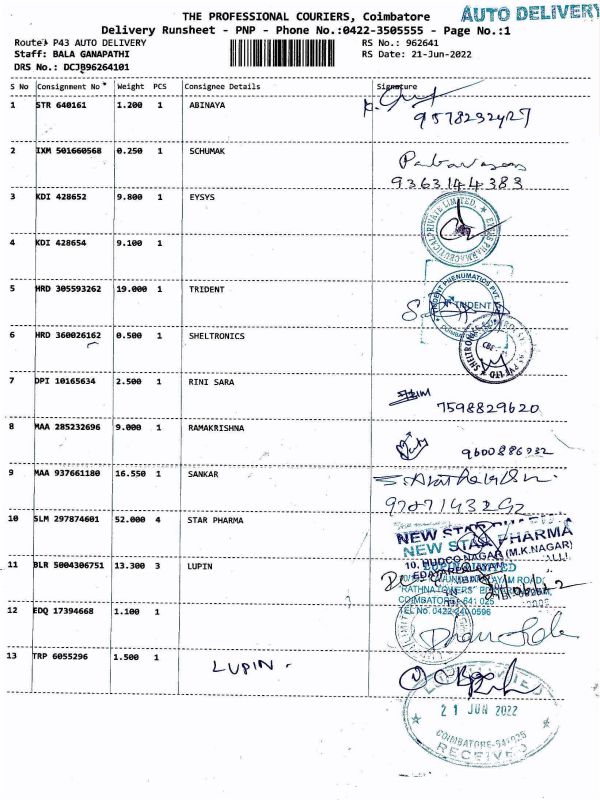 THE PROFESSIONAL COURIERS, Coimbatore
AUTO DELIVERY
Delivery Runsheet - PNP - Phone No.:0422-3505555 - Page No.:1
Route: P43 AUTO DELIVERY
RS No.: 962641
Staff: BALA GANAPATHI
RS Date: 21-Jun-2022
DRS No.: DCJB96264101
S No Consignment No Weight PCS Consignee Details Signature
1 STR 640161 1.200 1 ABINAYA
9578232427
2 IXM 501660568 0.250 1 SCHUMAK
9363144383
3 KDI 428652 9.800 1 EYSYS
4 KDI 428654 9.100 1
5 HRD 305593262 19.000 1 TRIDENT
TRIDENT
6 HRD 360026162 0.500 1 SHELTRONICS
7 DPI 10165634 2.500 1 RINI SARA
7598829620
8 MAA 285232696 9.000 1 RAMAKRISHNA
9 MAA 937661180 16.550 1 SANKAR
10 SLM 297874601 52.000 4 STAR PHARMA
NEW STAR PHARMA
10, HUDCO NAGAR (M.K.NAGAR)
11 BLR 5004306751 13.300 3 LUPIN
COIMBATORE - 641 025
12 EDQ 17394668 1.100 1
13 TRP 6055296 1.500 1
LUPIN
21 JUN 2022
COIMBATORE-641025
RECEIVED